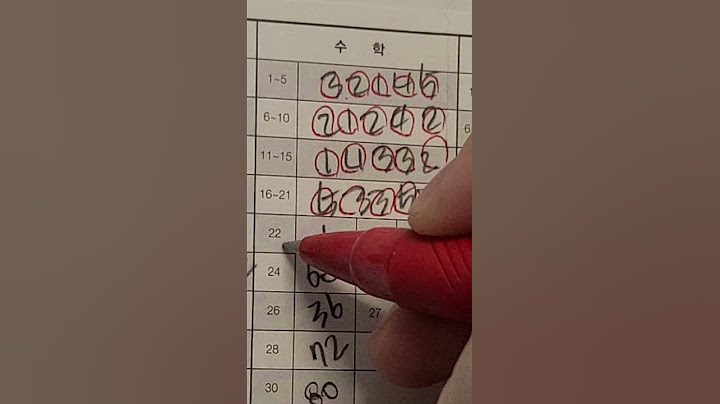 수 학
1~5 3 2 1 4 5
6~10 2 1 2 4 2
11~15 1 4 3 3 2
16~21 5 3 3 5
22
24
26 36 27
28 72
30 80